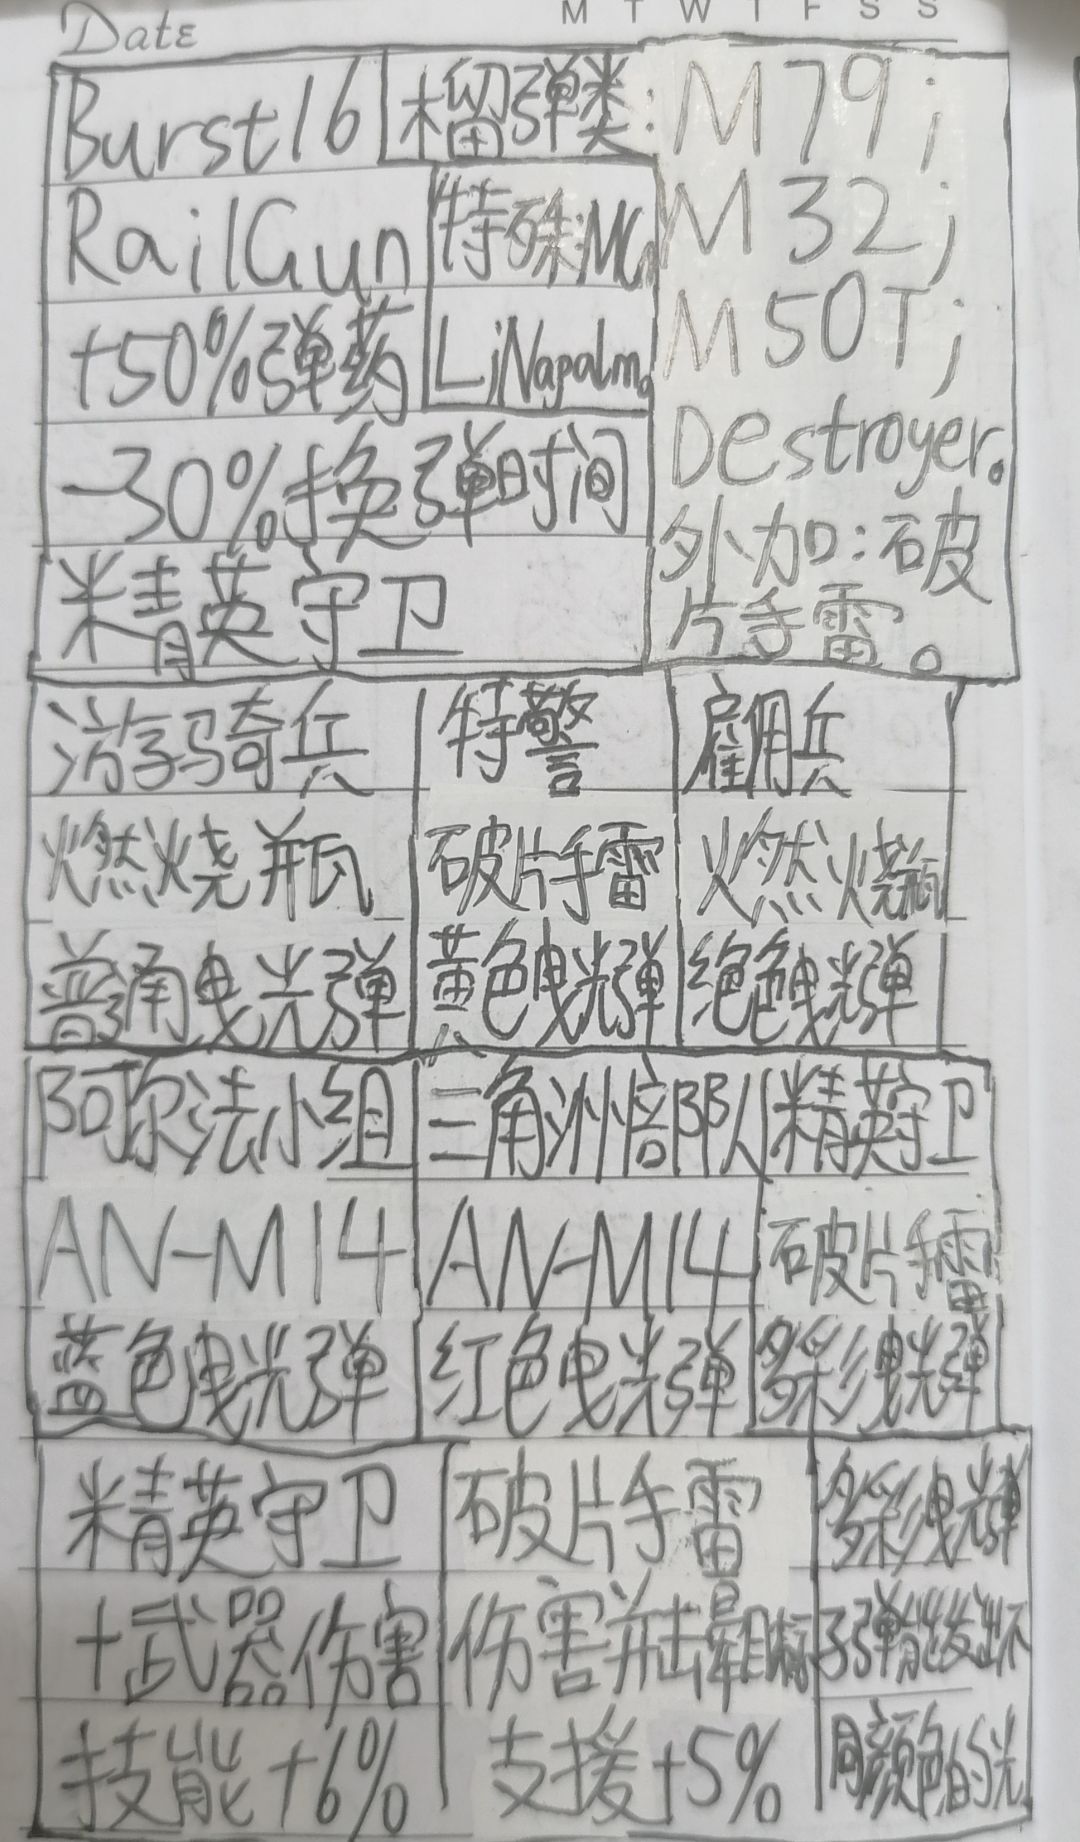 Date
M T W T F S S
Burst16
榴弹类:
M79;
RailGun
特殊:MG
M32;
+50%弹药
LiNapalm。
M50T;
-30%换弹时间
Destroyer。
精英守卫
外加:破
片手雷。
游孑马奇兵 特警 雇佣兵
燃烧瓶 破片手雷 燃烧瓶
普通曳光弹 黄色曳光弹 绝色曳光弹
阿尔法小组 三角洲部队 精英守卫
AN-M14 AN-M14 破片手雷
蓝色曳光弹 红色曳光弹 多彩曳光弹
精英守卫 破片手雷 多彩曳光弹
+武器伤害 伤害并击晕目标 子弹能发出不
技能+6% 支援+5% 同颜色的光